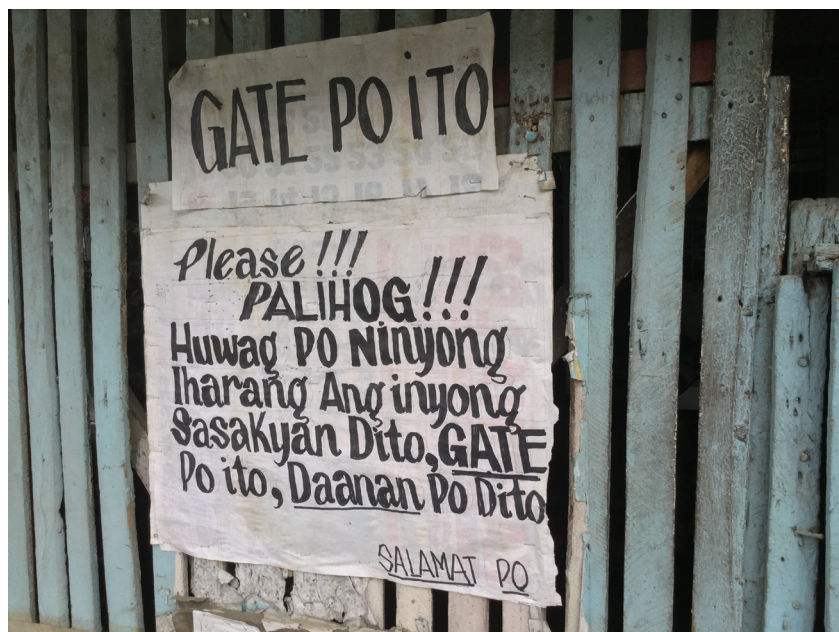 GATE PO iTO
Please !!!
PALIHOG !!!
Huwag Po Ninyong
Iharang Ang inyong
Sasakyan Dito, GATE
Po ito, Daanan Po Dito
SALAMAT PO